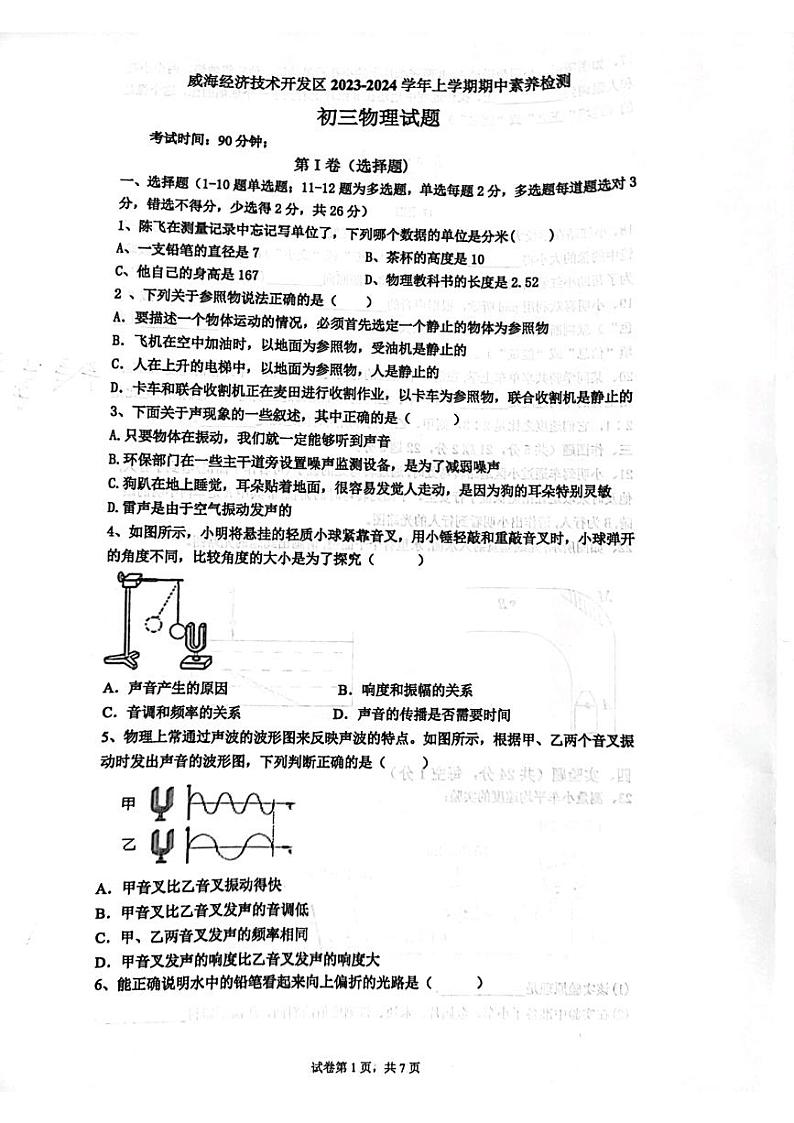 威海经济技术开发区 2023-2024 学年上学期期中素养检测
初三物理试题
考试时间：90 分钟；
第 I 卷（选择题）
一、选择题（1-10 题单选题；11-12 题为多选题，单选每题 2 分，多选题每道题选对 3
分，错选不得分，少选得 2 分，共 26 分）
1、陈飞在测量记录中忘记写单位了，下列哪个数据的单位是分米( )
A、一支铅笔的直径是 7 B、茶杯的高度是 10
C、他自己的身高是 167 D、物理教科书的长度是 2.52
2 、下列关于参照物说法正确的是（ ）
A．要描述一个物体运动的情况，必须首先选定一个静止的物体为参照物
B．飞机在空中加油时，以地面为参照物，受油机是静止的
C．人在上升的电梯中，以地面为参照物，人是静止的
D．卡车和联合收割机正在麦田进行收割作业，以卡车为参照物，联合收割机是静止的
3、下面关于声现象的一些叙述，其中正确的是（ ）
A.只要物体在振动，我们就一定能够听到声音
B.环保部门在一些主干道旁设置噪声监测设备，是为了减弱噪声
C.狗趴在地上睡觉，耳朵贴着地面，很容易发觉人走动，是因为狗的耳朵特别灵敏
D.雷声是由于空气振动发声的
4、如图所示，小明将悬挂的轻质小球紧靠音叉，用小锤轻敲和重敲音叉时，小球弹开
的角度不同，比较角度的大小是为了探究（ ）
A．声音产生的原因 B．响度和振幅的关系
C．音调和频率的关系 D．声音的传播是否需要时间
5、物理上常通过声波的波形图来反映声波的特点。如图所示，根据甲、乙两个音叉振
动时发出声音的波形图，下列判断正确的是（ ）
甲
乙
A．甲音叉比乙音叉振动得快
B．甲音叉比乙音叉发声的音调低
C．甲、乙两音叉发声的频率相同
D．甲音叉发声的响度比乙音叉发声的响度大
6、能正确说明水中的铅笔看起来向上偏折的光路是（ ）
试卷第 1 页，共 7 页